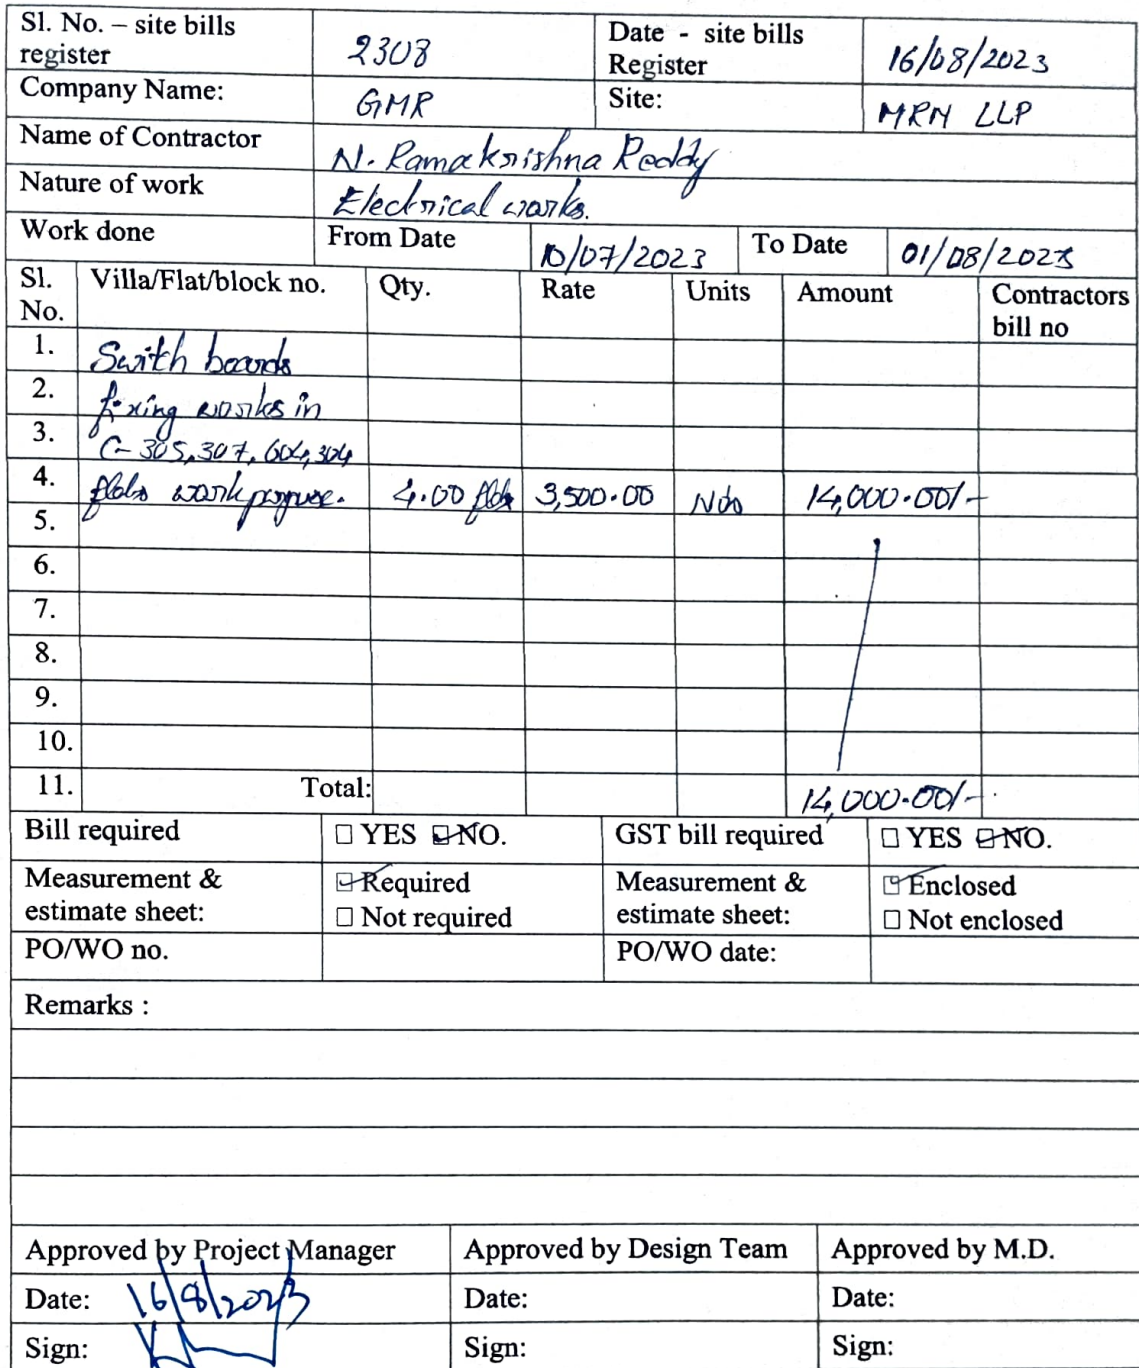 Sl. No. – site bills register 2308 Date - site bills Register 16/08/2023
Company Name: GMR Site: MRM LLP
Name of Contractor N. Ramakrishna Reddy
Nature of work Electrical works.
Work done From Date 10/07/2023 To Date 01/08/2023
Sl. No. Villa/Flat/block no. Qty. Rate Units Amount Contractors bill no
1. Swith boards
2. fixing works in
3. C-305,307,604,304
4. work 4.00 3,500.00 Nos 14,000.00/-
5.
6.
7.
8.
9.
10.
11. Total: 14,000.00/-
Bill required □ YES ☑ NO. GST bill required □ YES ☑ NO.
Measurement & estimate sheet: ☑ Required □ Not required Measurement & estimate sheet: ☑ Enclosed □ Not enclosed
PO/WO no. PO/WO date:
Remarks :
Approved by Project Manager Approved by Design Team Approved by M.D.
Date: 16/8/2023 Date: Date:
Sign: Sign: Sign: